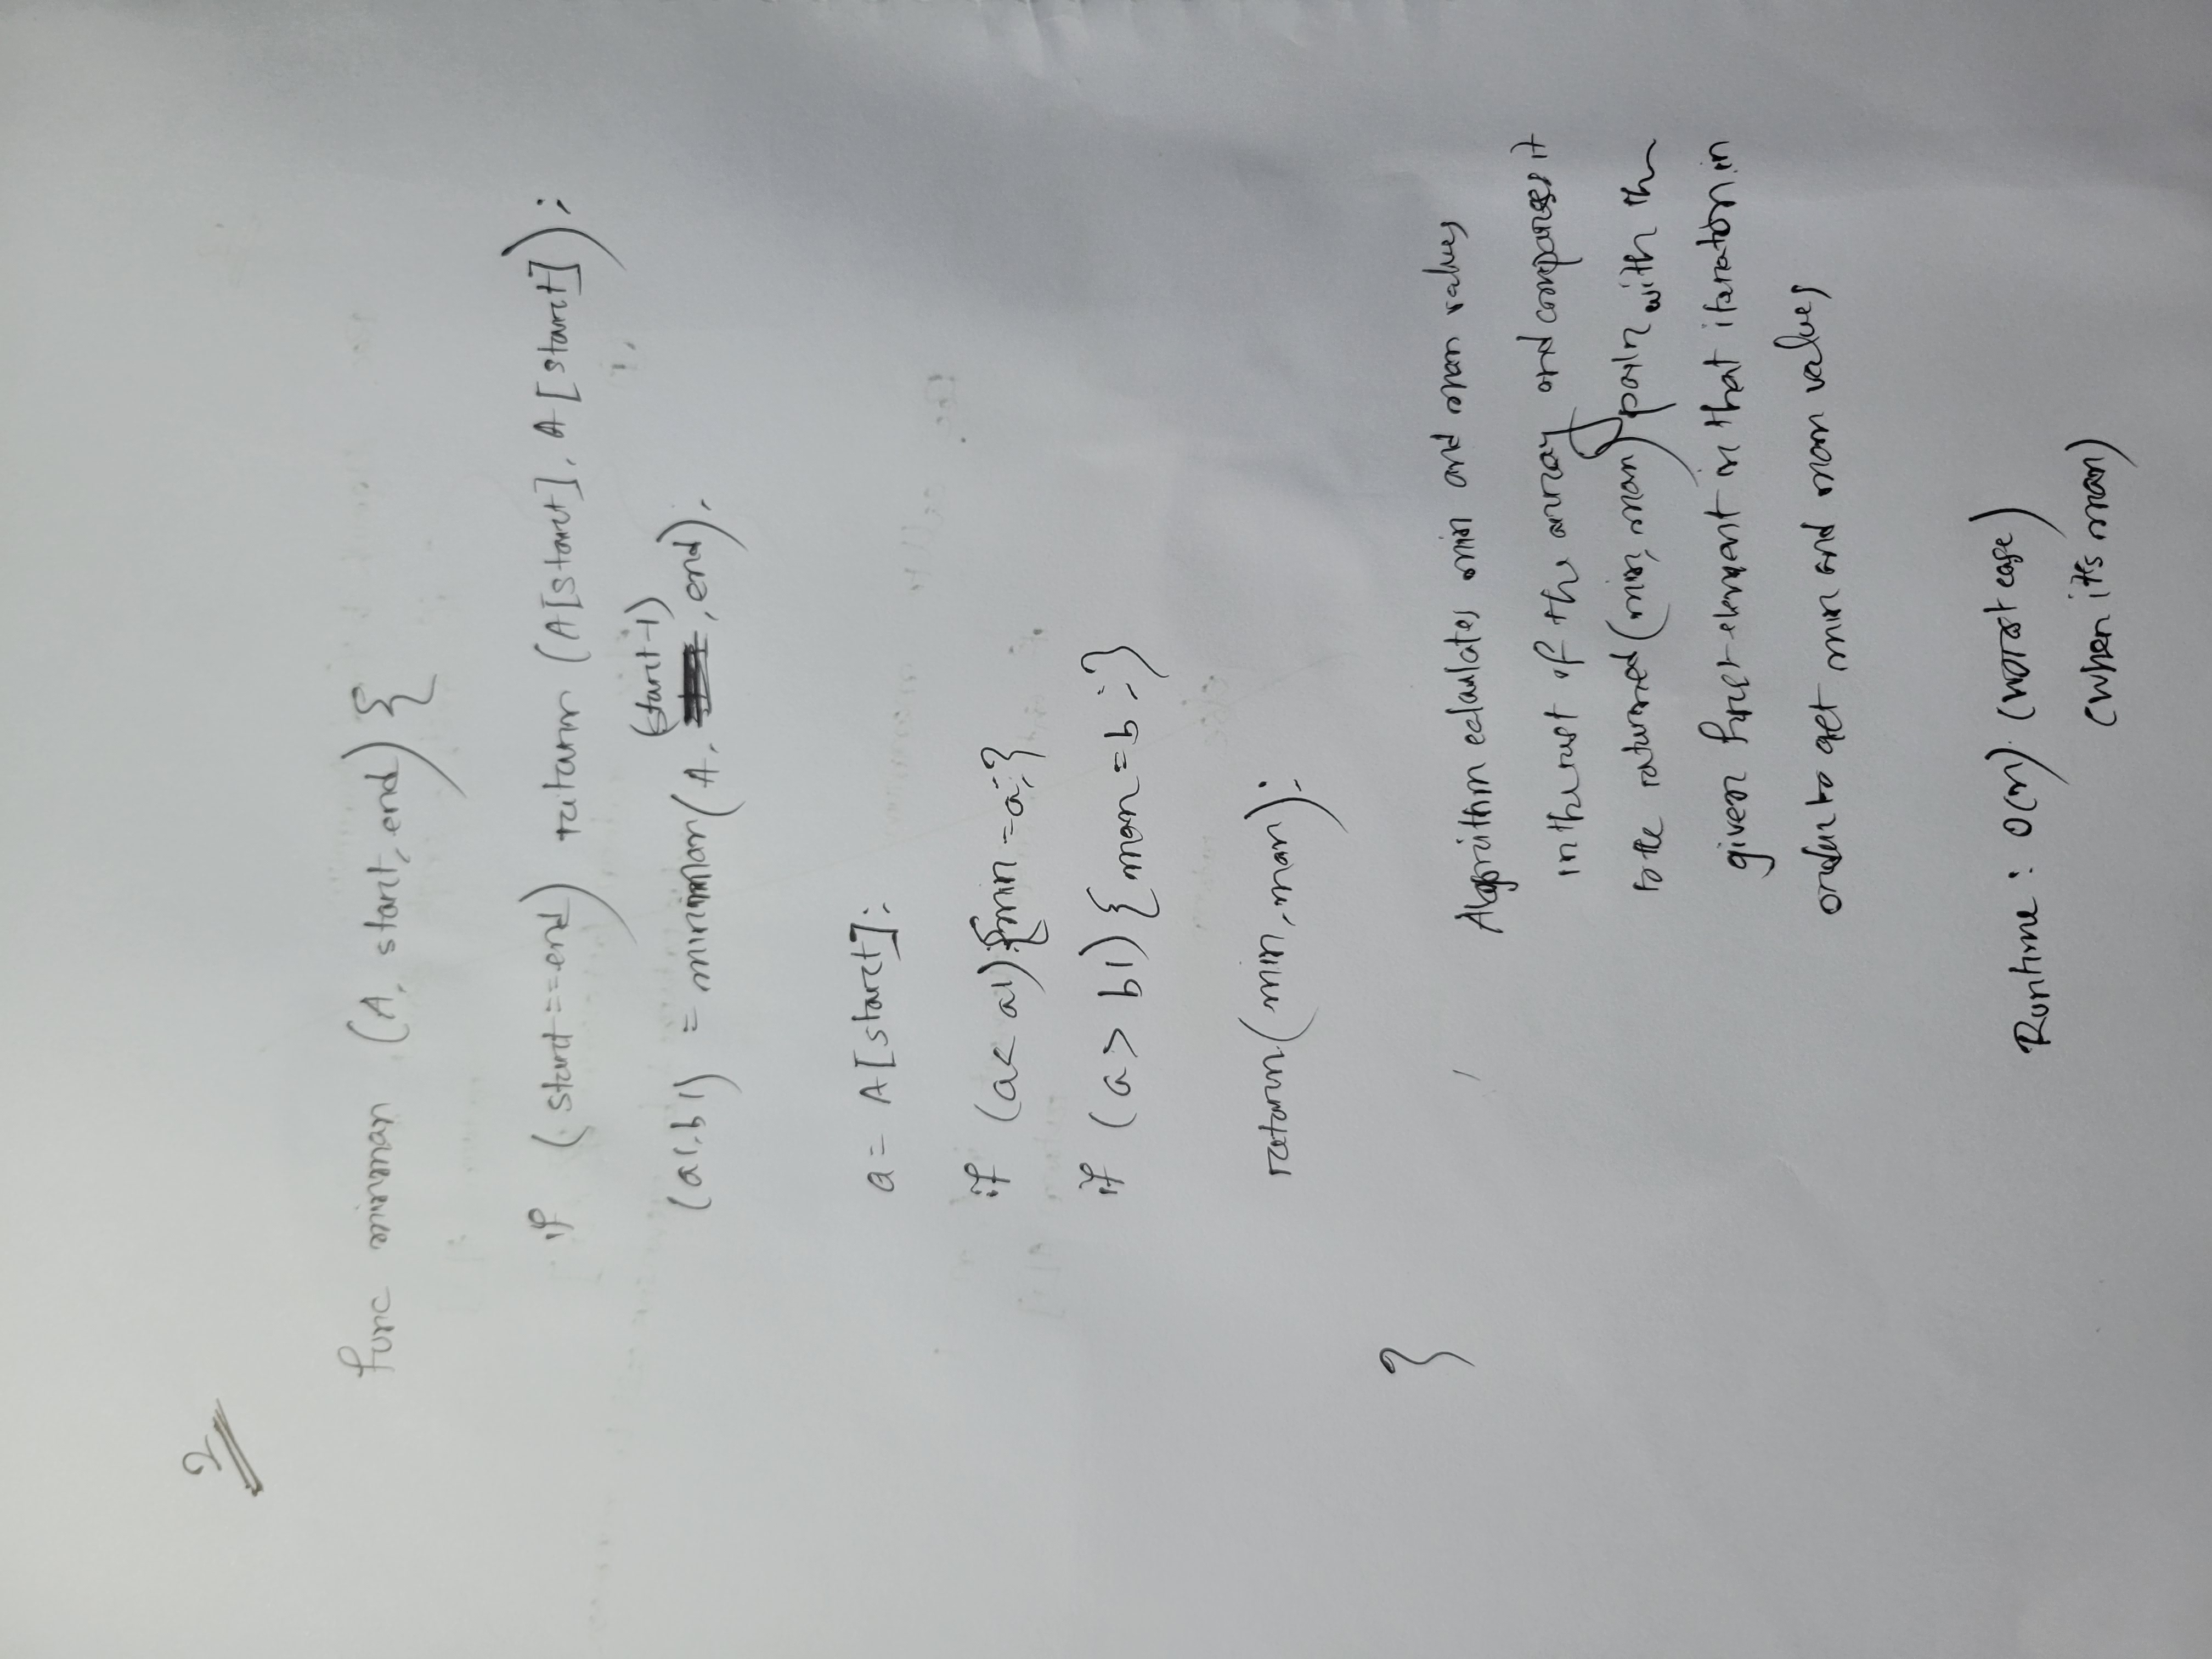 2
func minmax (A, start, end) {
if (start == end) return (A[start], A[start]);
(start-1)
(a1, b1) = minmax(A, , end);
a = A[start];
if (a < a1) {min = a;}
if (a > b1) {max = b;}
return (min, max);
}
Algorithm calculates min and max values
in the rest of the array and compares it
to the returned (min, max) pair with the
given first element in that iteration in
order to get min and max values
Runtime: O(n) (worst case)
(when it's max)